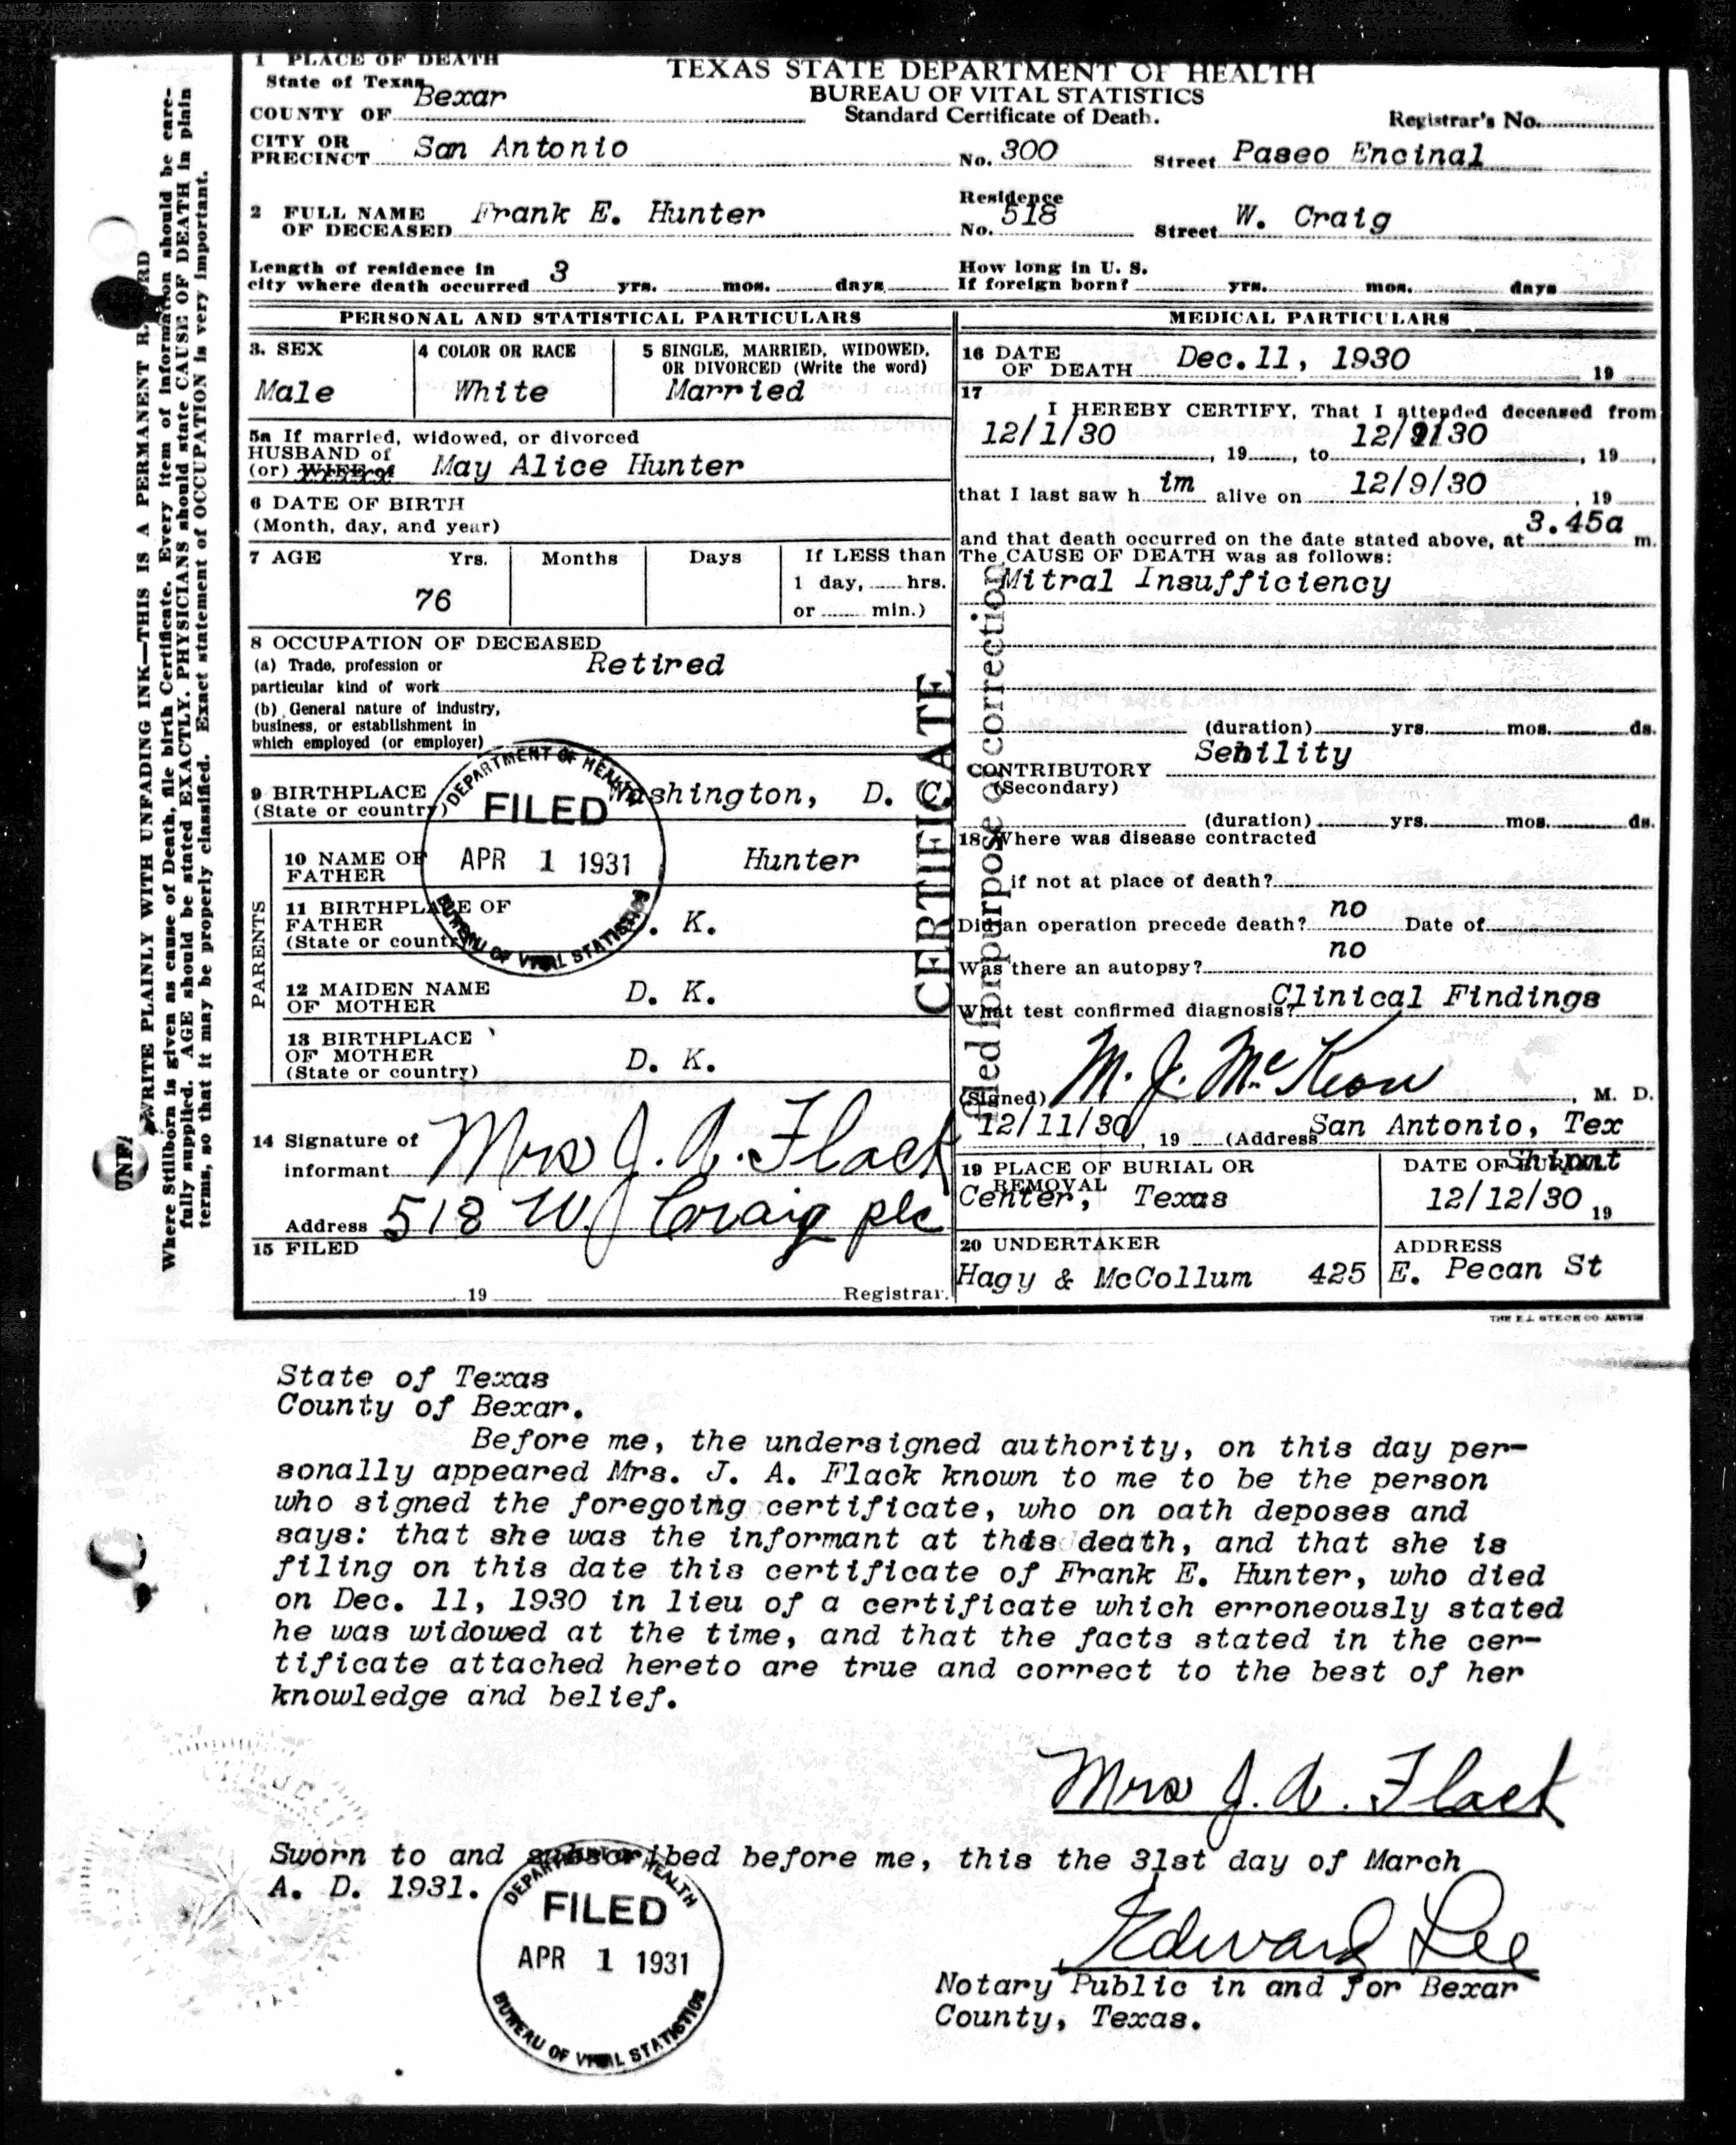 1 PLACE OF DEATH
TEXAS STATE DEPARTMENT OF HEALTH
BUREAU OF VITAL STATISTICS
Standard Certificate of Death.
State of Texas
COUNTY OF Bexar
Registrar's No.
CITY OR PRECINCT San Antonio No. 300 Street Paseo Encinal
2 FULL NAME OF DECEASED Frank E. Hunter Residence No. 518 Street W. Craig
Length of residence in city where death occurred 3 yrs. mos. days
How long in U. S. If foreign born? yrs. mos. days
PERSONAL AND STATISTICAL PARTICULARS
3. SEX
Male
4 COLOR OR RACE
White
5 SINGLE, MARRIED, WIDOWED, OR DIVORCED (Write the word)
Married
5a If married, widowed, or divorced
HUSBAND of
(or) WIFE of May Alice Hunter
6 DATE OF BIRTH
(Month, day, and year)
7 AGE Yrs. Months Days If LESS than
1 day, hrs.
or min.)
76
8 OCCUPATION OF DECEASED
(a) Trade, profession or
particular kind of work Retired
(b) General nature of industry,
business, or establishment in
which employed (or employer)
9 BIRTHPLACE
(State or country) Washington, D. C.
PARENTS
10 NAME OF
FATHER Hunter
11 BIRTHPLACE OF
FATHER
(State or country) . K.
12 MAIDEN NAME
OF MOTHER D. K.
13 BIRTHPLACE
OF MOTHER
(State or country) D. K.
14 Signature of
informant Mrs J. A. Flack
Address 518 W. Craig plc
15 FILED
19 Registrar.
DEPARTMENT OF HEALTH
FILED
APR 1 1931
BUREAU OF VITAL STATISTICS
CERTIFICATE
filed for purpose of correction
MEDICAL PARTICULARS
16 DATE
OF DEATH Dec. 11, 1930 19
17
I HEREBY CERTIFY, That I attended deceased from
12/1/30, 19, to 12/9/30, 19,
that I last saw h im alive on 12/9/30, 19
and that death occurred on the date stated above, at 3.45a m.
The CAUSE OF DEATH was as follows:
Mitral Insufficiency
(duration) yrs. mos. ds.
CONTRIBUTORY Senility
(Secondary)
(duration) yrs. mos. ds.
18 Where was disease contracted
if not at place of death?
Did an operation precede death? no Date of
Was there an autopsy? no
What test confirmed diagnosis? Clinical Findings
(Signed) M. J. McKeon, M. D.
12/11/30, 19 (Address San Antonio, Tex
19 PLACE OF BURIAL OR
REMOVAL
Center, Texas
DATE OF BURIAL Shipmt
12/12/30 19
20 UNDERTAKER
Hagy & McCollum 425
ADDRESS
E. Pecan St
THE E.L. STECK CO AUSTIN
WRITE PLAINLY WITH UNFADING INK—THIS IS A PERMANENT RECORD
Where Stillborn is given as cause of Death, file birth Certificate. Every item of information should be care-
fully supplied. AGE should be stated EXACTLY. PHYSICIANS should state CAUSE OF DEATH in plain
terms, so that it may be properly classified. Exact statement of OCCUPATION is very important.
State of Texas
County of Bexar.
Before me, the undersigned authority, on this day per-
sonally appeared Mrs. J. A. Flack known to me to be the person
who signed the foregoing certificate, who on oath deposes and
says: that she was the informant at this death, and that she is
filing on this date this certificate of Frank E. Hunter, who died
on Dec. 11, 1930 in lieu of a certificate which erroneously stated
he was widowed at the time, and that the facts stated in the cer-
tificate attached hereto are true and correct to the best of her
knowledge and belief.
Mrs J. A. Flack
Sworn to and subscribed before me, this the 31st day of March
A. D. 1931.
DEPARTMENT OF HEALTH
FILED
APR 1 1931
BUREAU OF VITAL STATISTICS
Edward Lee
Notary Public in and for Bexar
County, Texas.